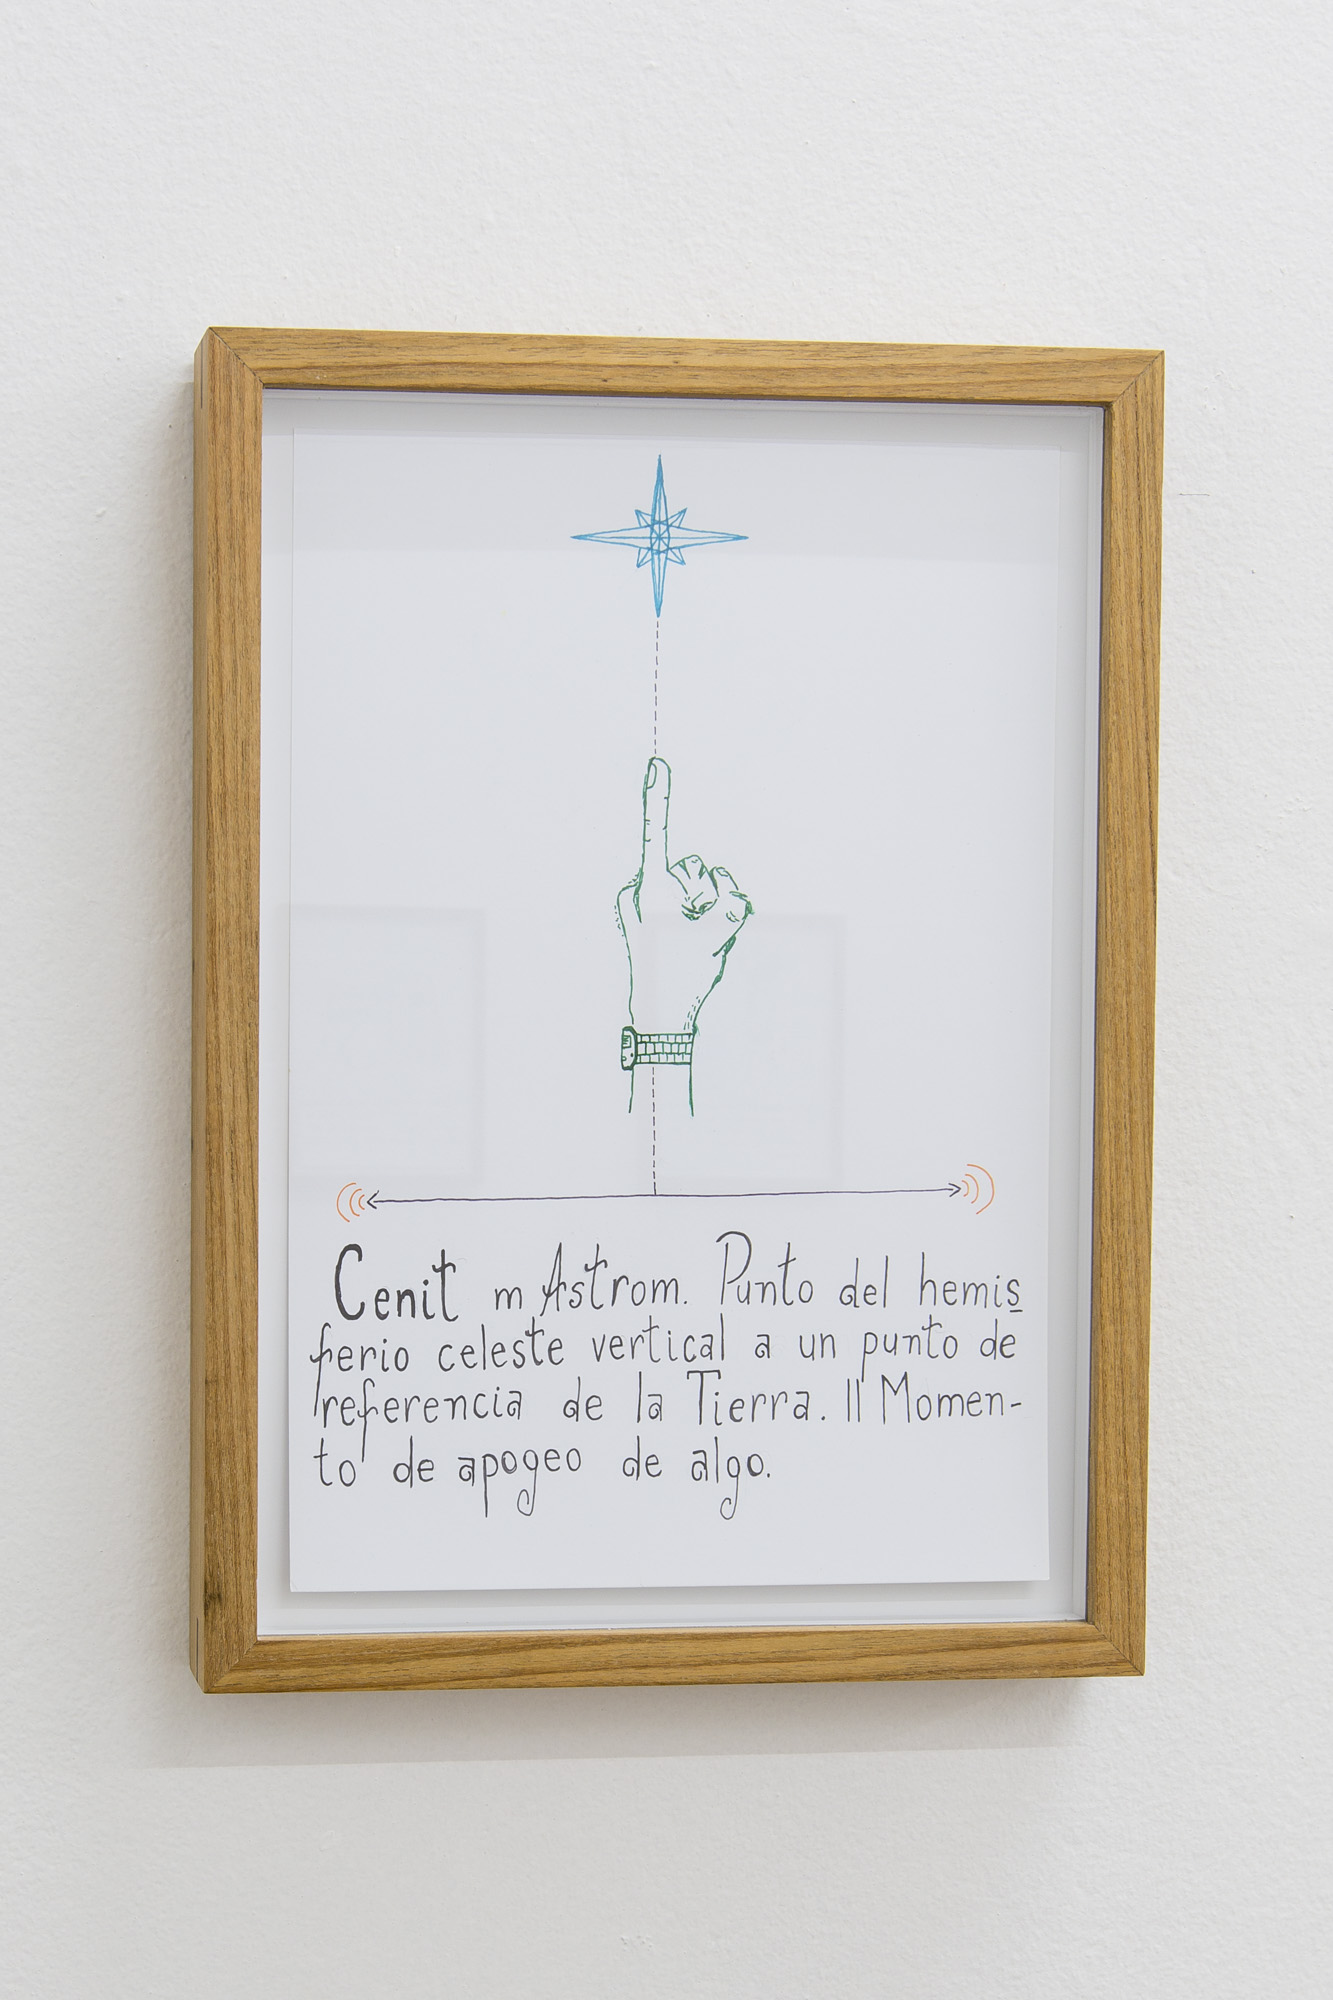 Cenit m Astrom. Punto del hemis
ferio celeste vertical a un punto de
referencia de la Tierra. || Momen-
to de apogeo de algo.